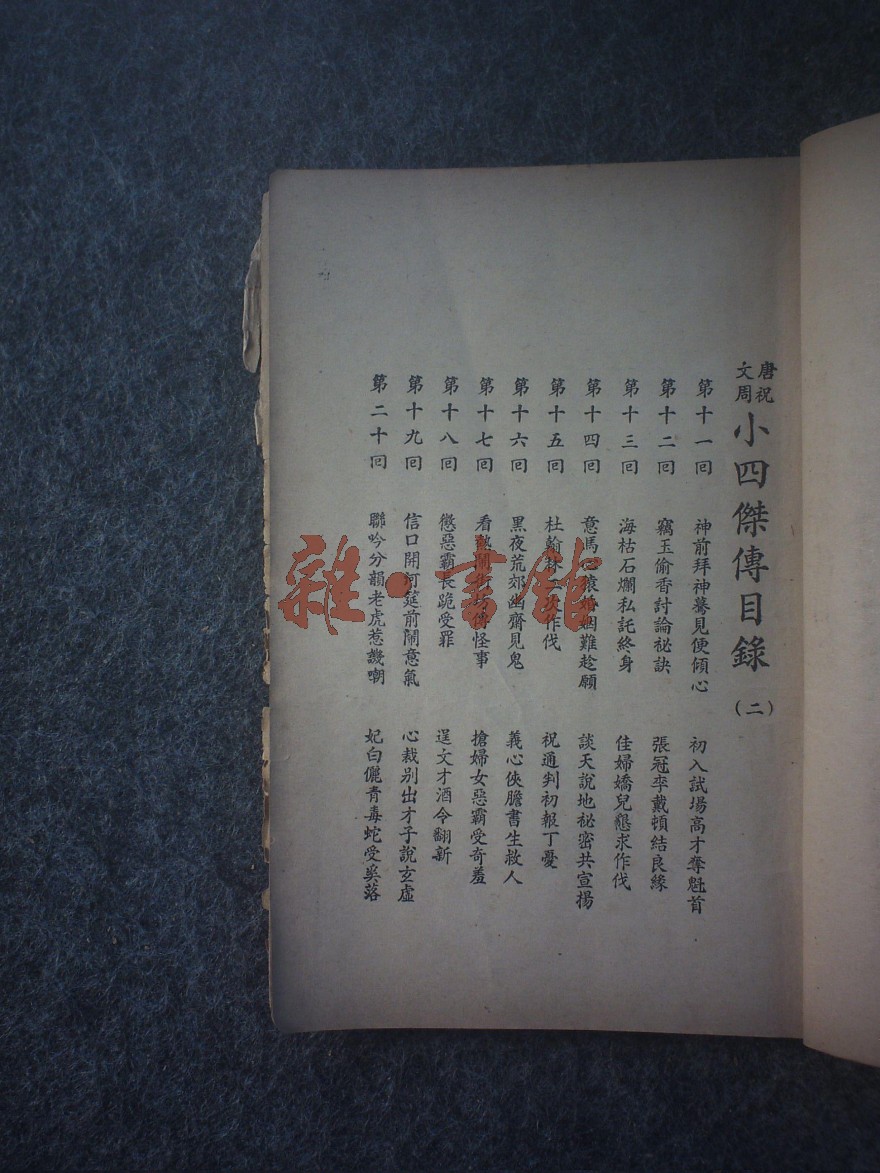 唐祝文周小四傑傳目錄（二）
第十一回 神前拜神驀見便傾心 初入試場高才奪魁首
第十二回 竊玉偷香討論祕訣 張冠李戴頓結良緣
第十三回 海枯石爛私託終身 佳婦嬌兒懇求作伐
第十四回 意馬心猿婚姻難趁願 談天說地祕密共宣揚
第十五回 杜翰林二次作伐 祝通判初報丁憂
第十六回 黑夜荒郊幽齋見鬼 義心俠膽書生救人
第十七回 看熱鬧街坊傳怪事 搶婦女惡霸受奇羞
第十八回 懲惡霸長跪受罪 逞文才酒令翻新
第十九回 信口開河筵前鬧意氣 心裁別出才子說玄虛
第二十回 聯吟分韻老虎惹譏嘲 妃白儷青毒蛇受奚落
雜·書館